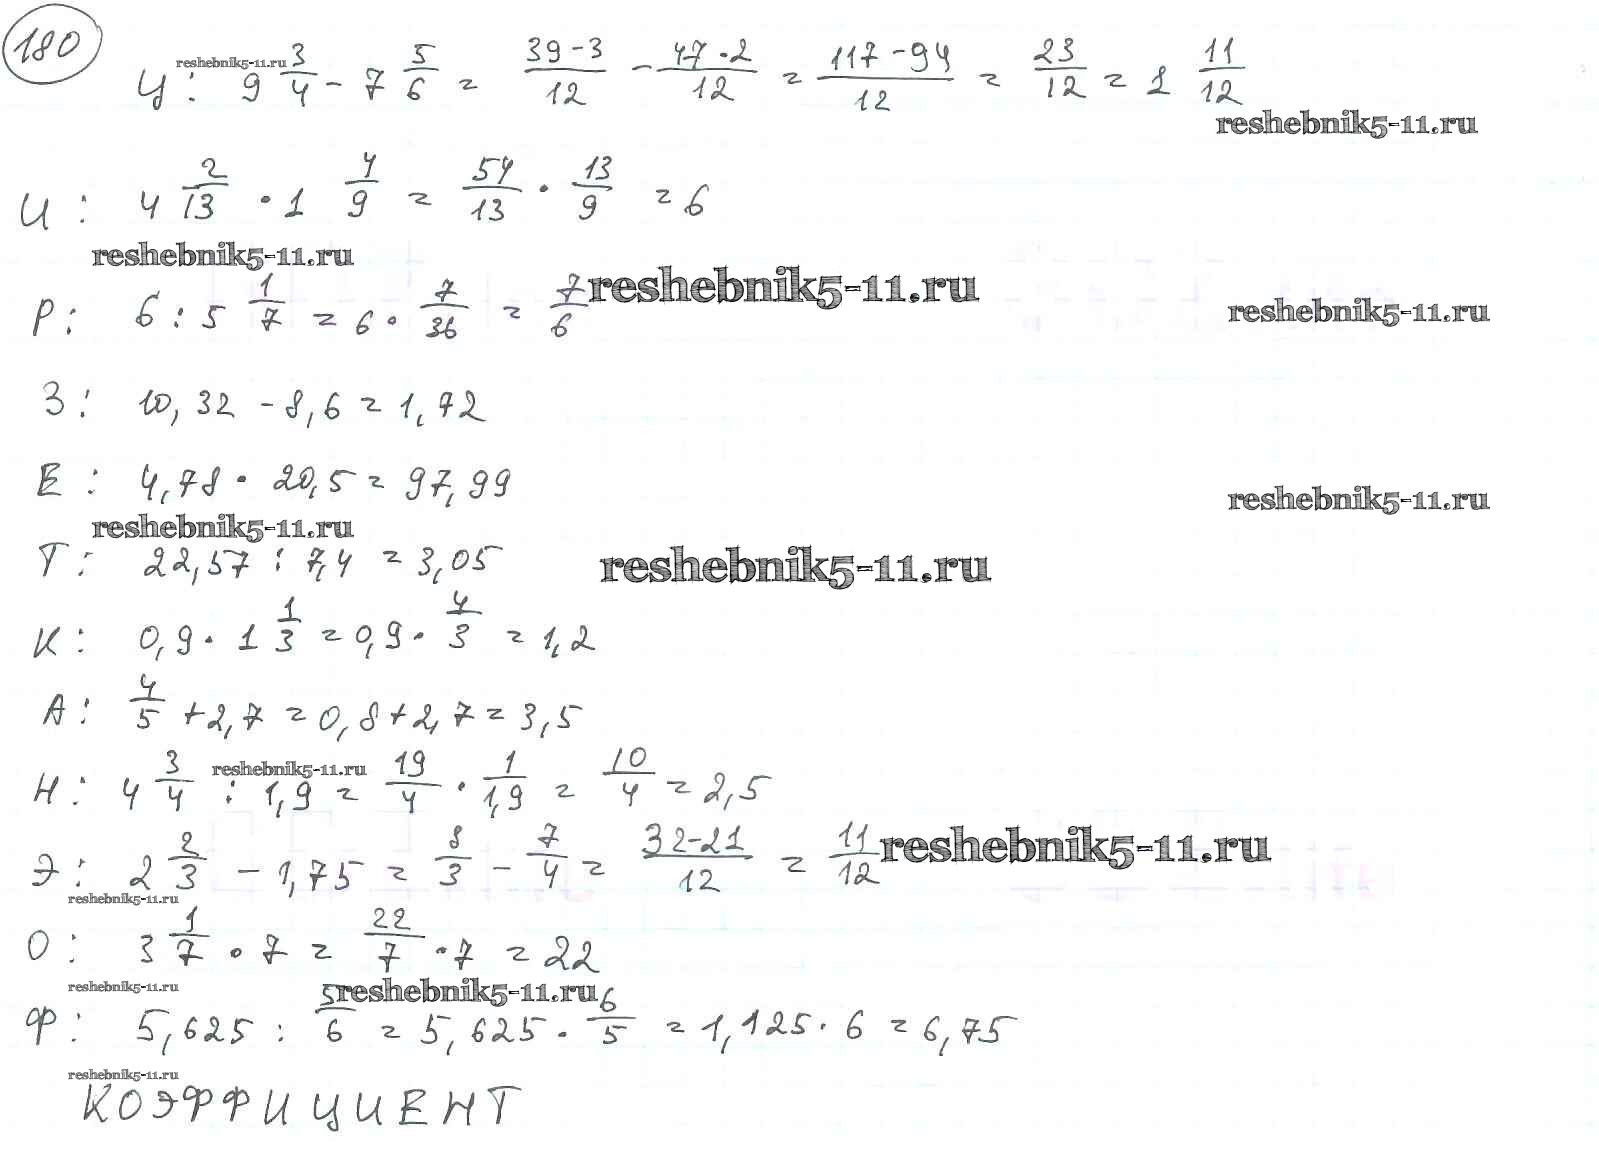 180
reshebnik5-11.ru
Ц: 9 3/4 - 7 5/6 = 39·3/12 - 47·2/12 = 117-94/12 = 23/12 = 1 11/12
reshebnik5-11.ru
И: 4 2/13 · 1 4/9 = 54/13 · 13/9 = 6
reshebnik5-11.ru
reshebnik5-11.ru
reshebnik5-11.ru
Р: 6 : 5 1/7 = 6 · 7/36 = 7/6
З: 10,32 - 8,6 = 1,72
Е: 4,78 · 20,5 = 97,99
reshebnik5-11.ru
reshebnik5-11.ru
Т: 22,57 : 7,4 = 3,05
reshebnik5-11.ru
К: 0,9 · 1 1/3 = 0,9 · 4/3 = 1,2
А: 4/5 + 2,7 = 0,8 + 2,7 = 3,5
reshebnik5-11.ru
Н: 4 3/4 : 1,9 = 19/4 · 1/1,9 = 10/4 = 2,5
Э: 2 2/3 - 1,75 = 8/3 - 7/4 = 32-21/12 = 11/12
reshebnik5-11.ru
reshebnik5-11.ru
О: 3 1/7 · 7 = 22/7 · 7 = 22
reshebnik5-11.ru
reshebnik5-11.ru
Ф: 5,625 : 5/6 = 5,625 · 6/5 = 1,125 · 6 = 6,75
reshebnik5-11.ru
КОЭФФИЦИЕНТ